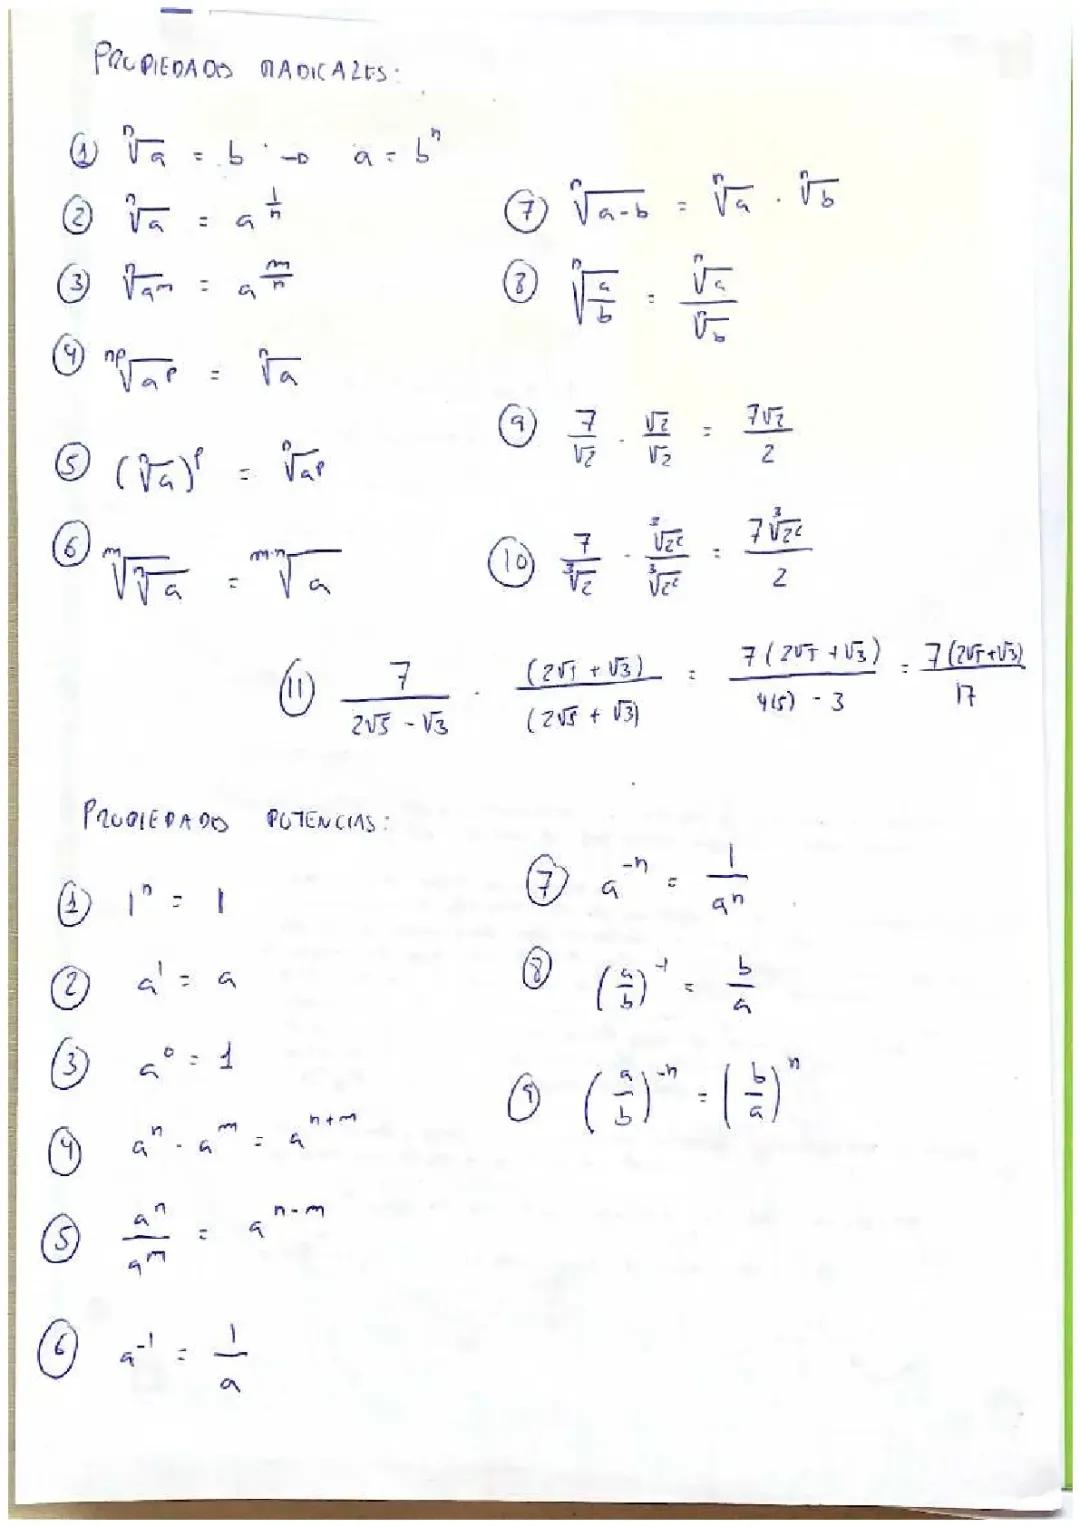 PROPIEDADES RADICALES:
① ⁿ√a = b → a = bⁿ
② ⁿ√a = a^(1/n)
③ ⁿ√a^m = a^(m/n)
④ ^(np)√a^p = ⁿ√a
⑤ (ⁿ√a)^p = ⁿ√a^p
⑥ ^m√ⁿ√a = ^(m·n)√a
⑦ ⁿ√a·b = ⁿ√a · ⁿ√b
⑧ ⁿ√(a/b) = ⁿ√a / ⁿ√b
⑨ 7/√2 · √2/√2 = 7√2/2
⑩ 7/³√2 · ³√2²/³√2² = 7³√2²/2
⑪ 7/(2√5 - √3) · (2√5 + √3)/(2√5 + √3) = 7(2√5 + √3)/(4(5) - 3) = 7(2√5+√3)/17
PROPIEDADES POTENCIAS:
① 1ⁿ = 1
② a¹ = a
③ a⁰ = 1
④ aⁿ · a^m = a^(n+m)
⑤ aⁿ/a^m = a^(n-m)
⑥ a⁻¹ = 1/a
⑦ a⁻ⁿ = 1/aⁿ
⑧ (a/b)⁻¹ = b/a
⑨ (a/b)⁻ⁿ = (b/a)ⁿ